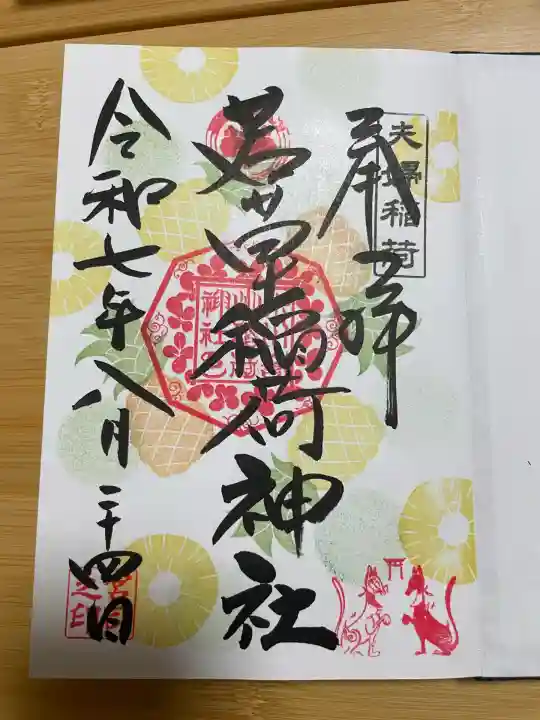 夫婦稲荷
奉拝
若草稲荷神社
令和七年八月二十四日